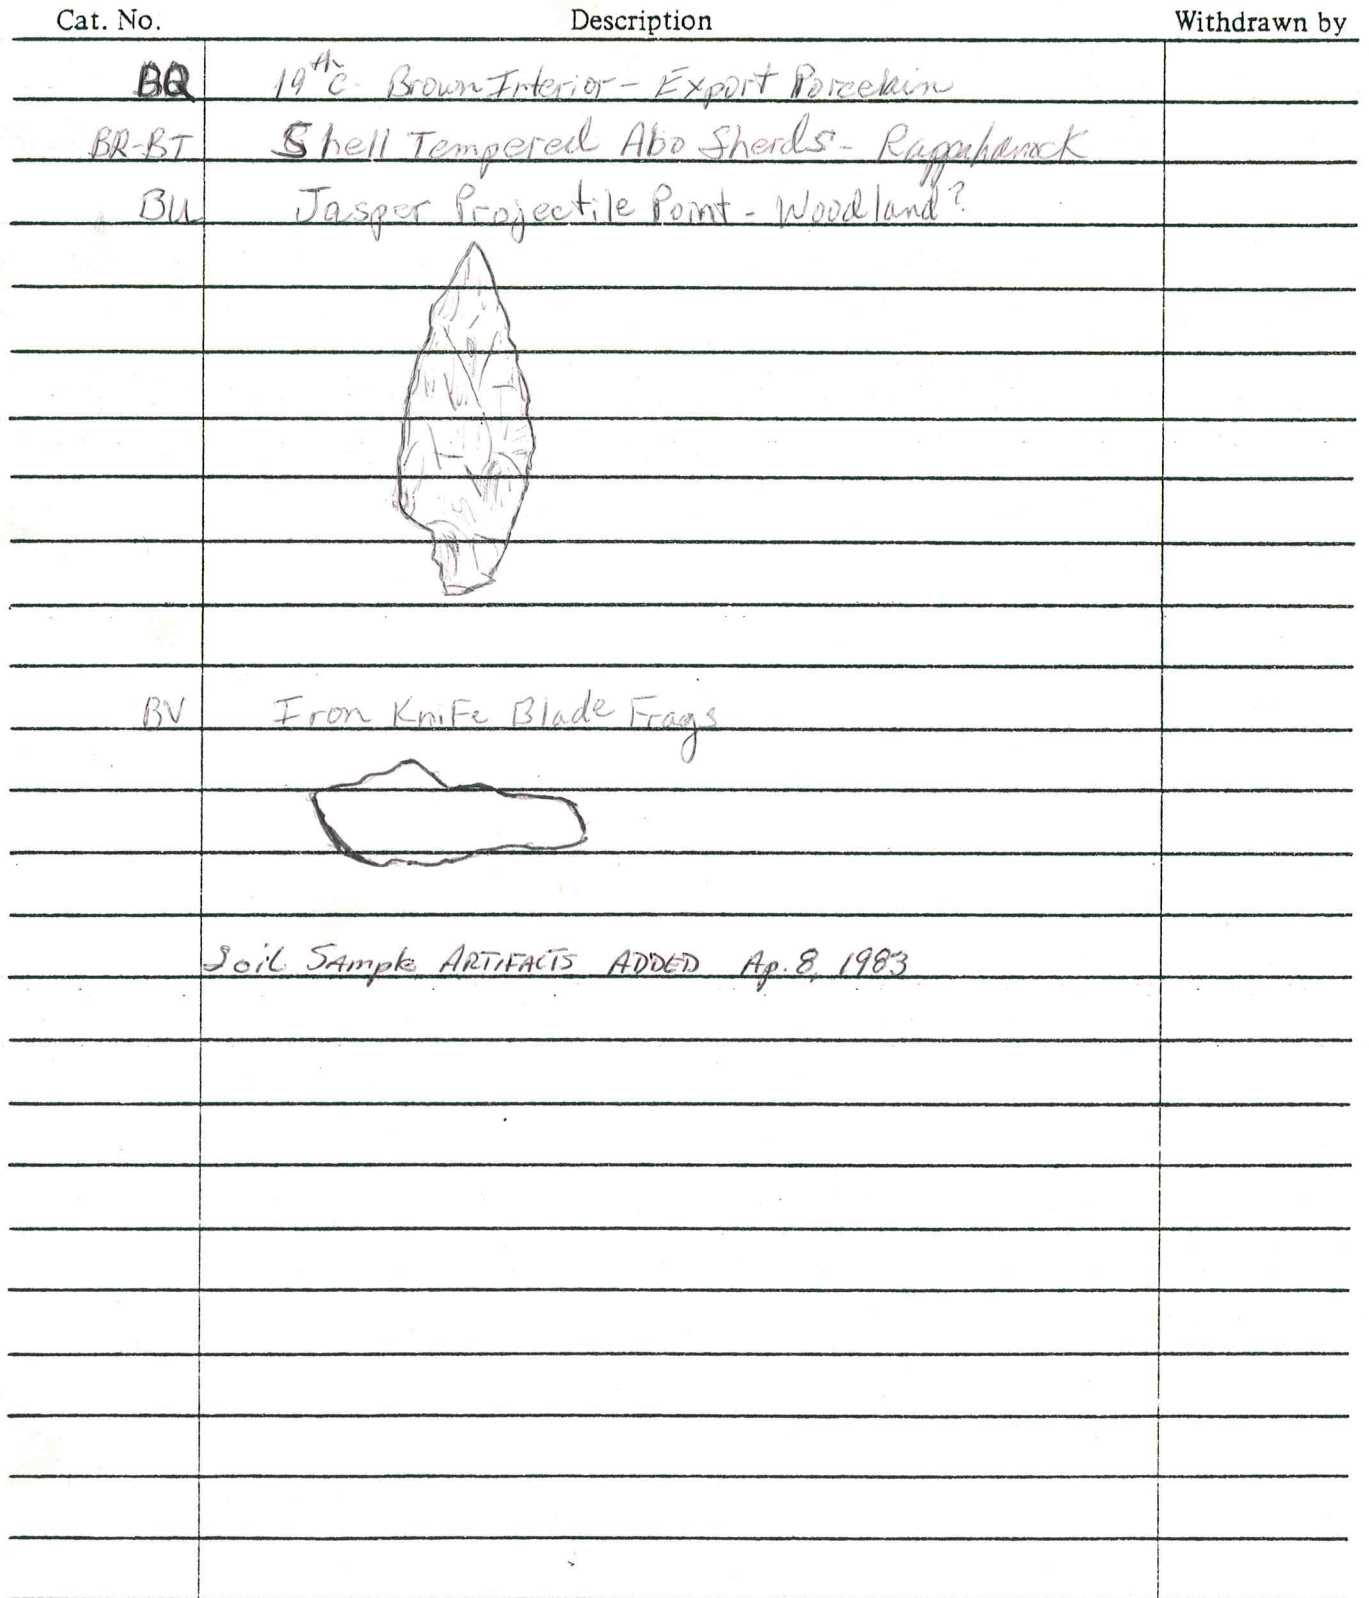 Cat. No. Description Withdrawn by
BQ 19th c. Brown Interior - Export Porcelain
BR-BT Shell Tempered Abo Sherds - Rappahanock
BU Jasper Projectile Point - Woodland?
BV Iron Knife Blade Frags
Soil Sample ARTIFACTS ADDED Ap. 8, 1983